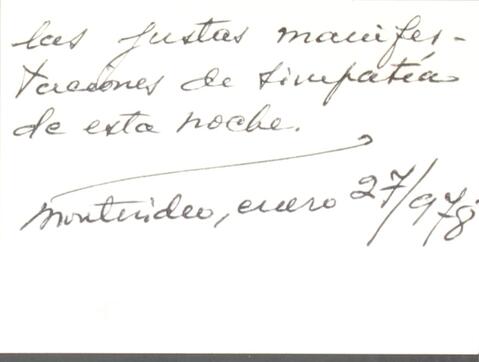 las justas manifes-
taciones de simpatía
de esta noche.
Montevideo, enero 27/978